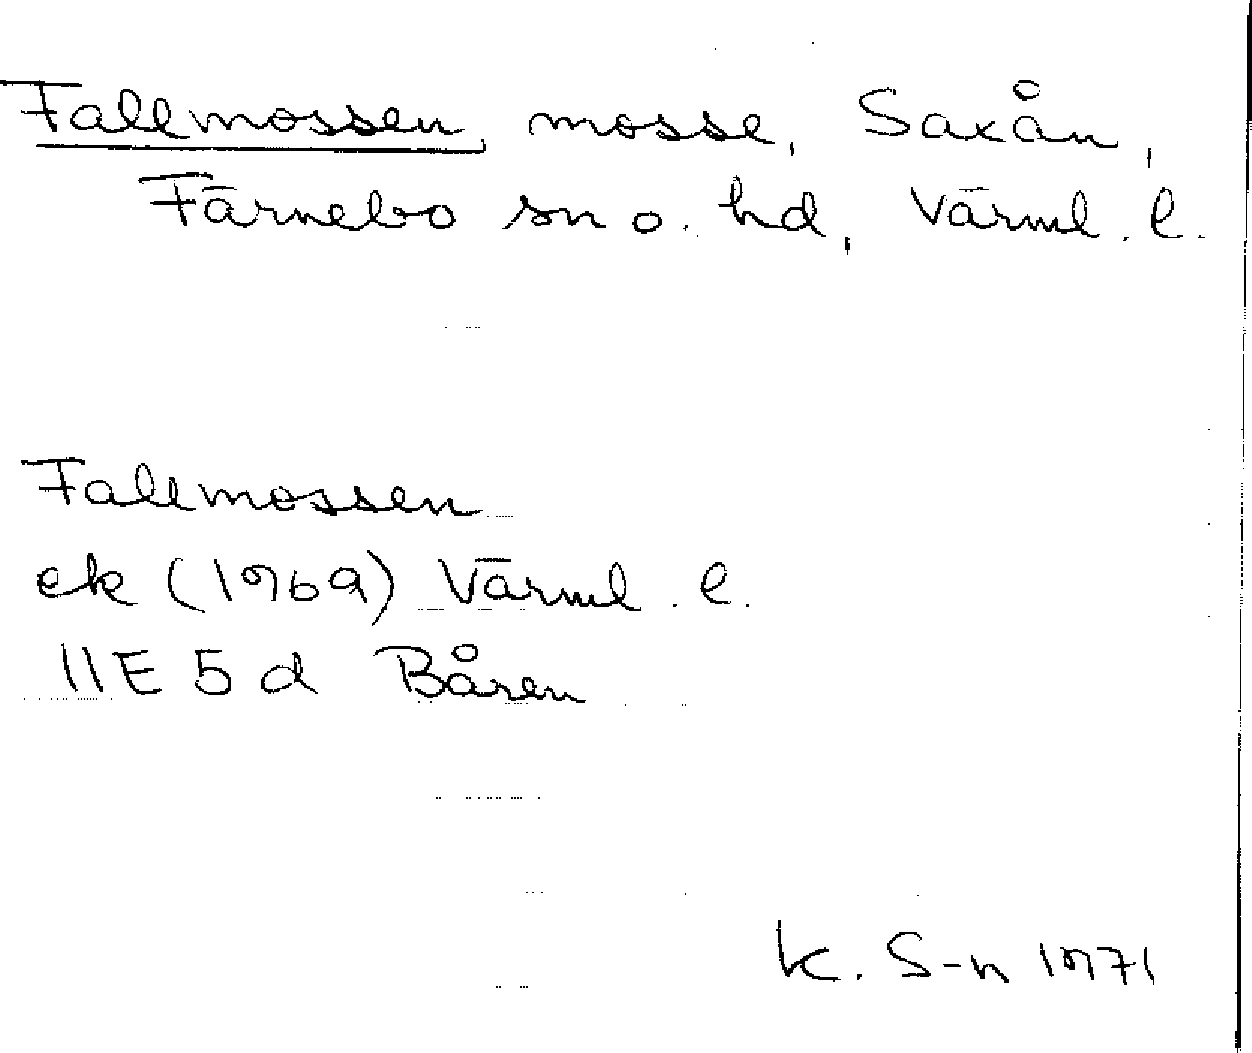 Fallmossen, mosse, Saxån,
Färnebo sn o. hd, Värml. l.
Fallmossen
ek (1969) Värml. l.
11E 5d Båren
K. S-n 1971